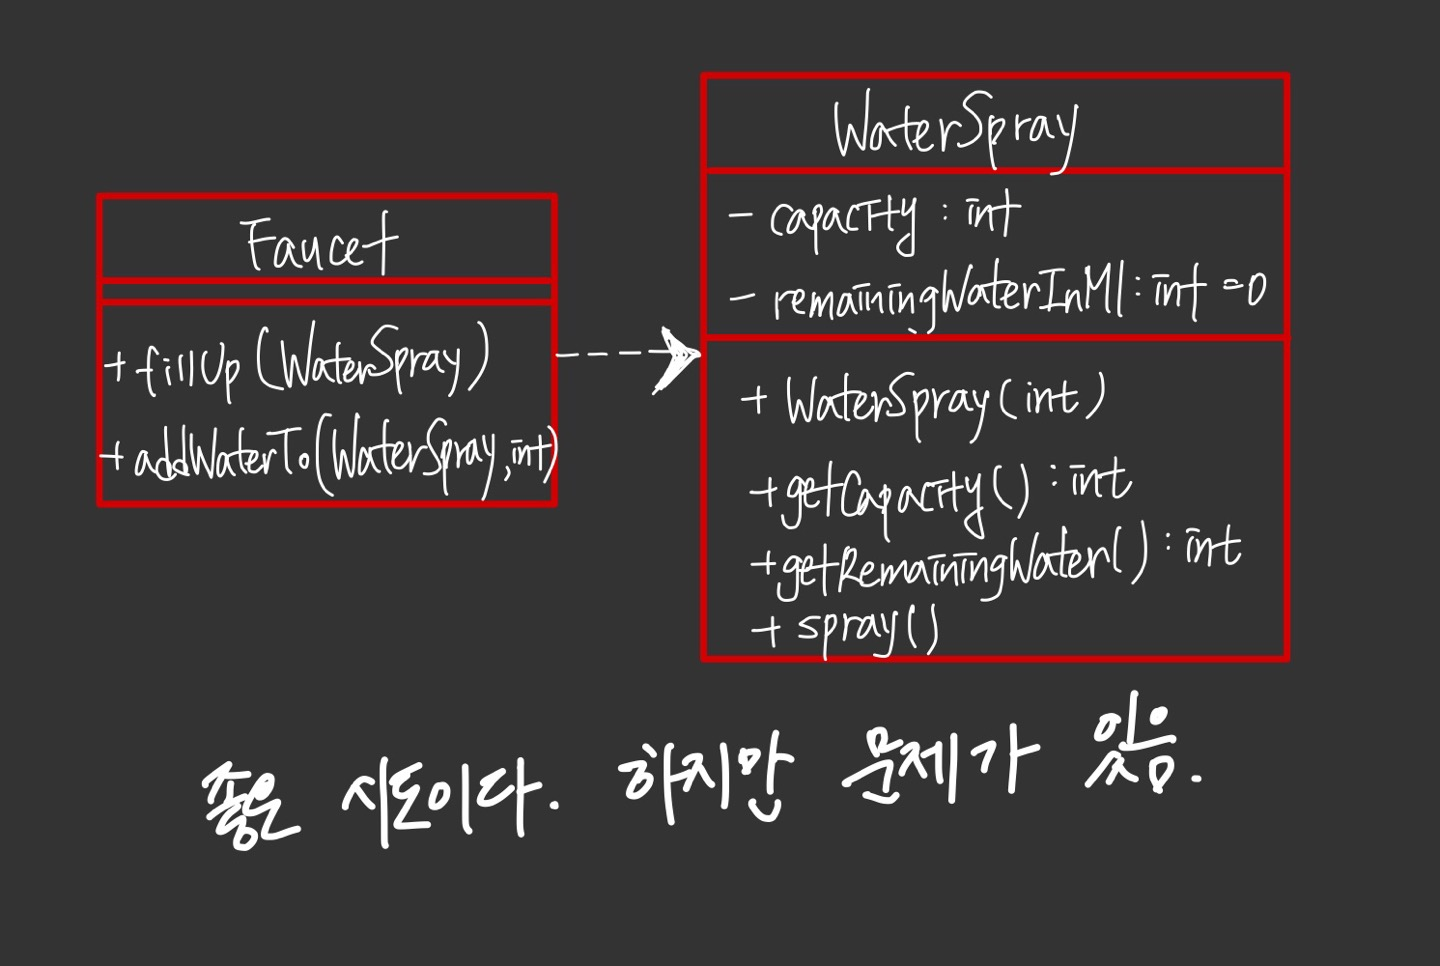 Faucet
+ fillUp (WaterSpray)
+ addWaterTo(WaterSpray, int)
WaterSpray
- capacity : int
- remainingWaterInMl : int = 0
+ WaterSpray(int)
+ getCapacity() : int
+ getRemainingWater() : int
+ spray()
좋은 시도이다. 하지만 문제가 있음.